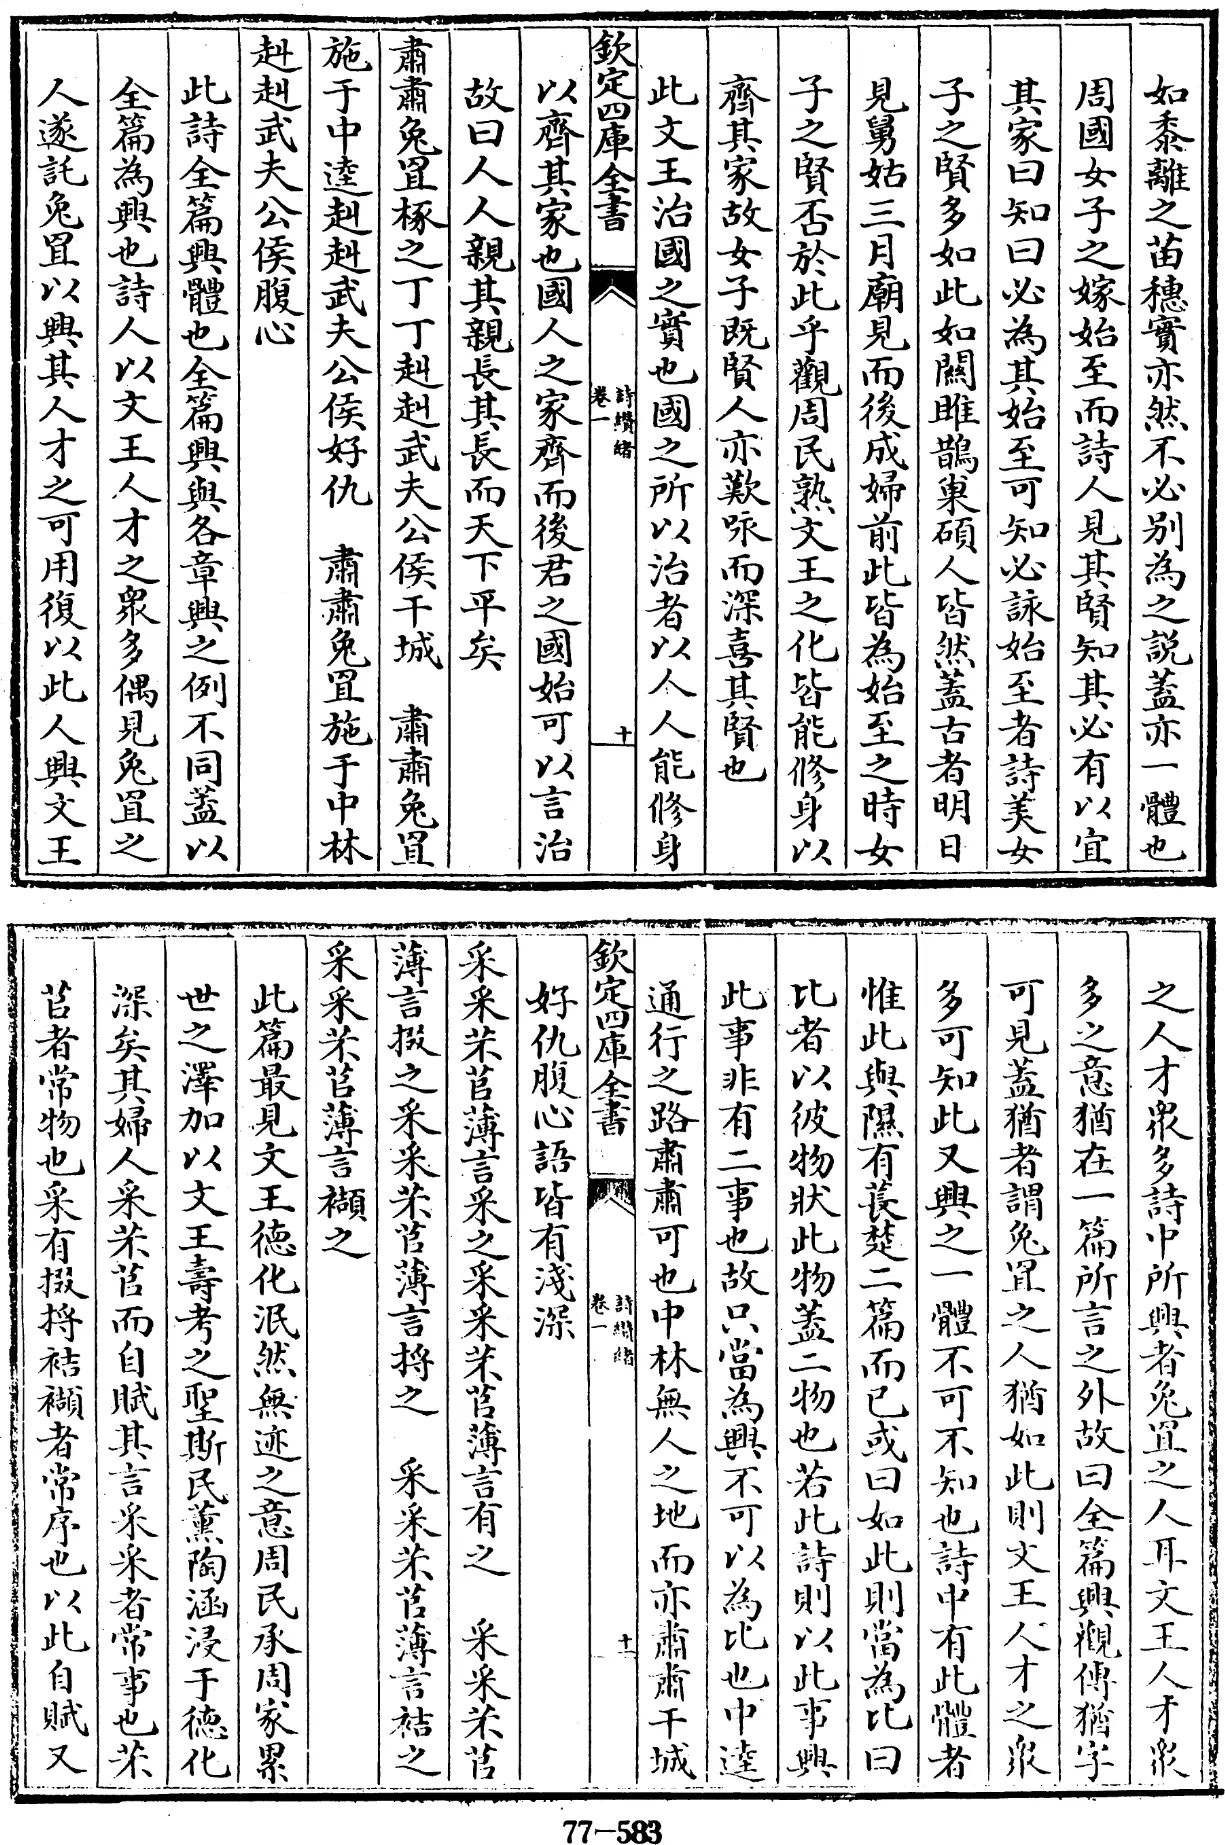 如黍離之苗穗實亦然不必别為之説蓋亦一體也
周國女子之嫁始至而詩人見其賢知其必有以宜
其家曰知曰必為其始至可知必詠始至者詩美女
子之賢多如此如關雎鵲巢碩人皆然蓋古者明日
見舅姑三月廟見而後成婦前此皆為始至之時女
子之賢否於此乎觀周民熟文王之化皆能脩身以
齊其家故女子既賢人亦歎咏而深喜其賢也
此文王治國之實也國之所以治者以人人能脩身
欽定四庫全書
詩纘緒
卷一
十
以齊其家也國人之家齊而後君之國始可以言治
故曰人人親其親長其長而天下平矣
肅肅兔罝椓之丁丁赳赳武夫公侯干城 肅肅兔罝
施于中逵赳赳武夫公侯好仇 肅肅兔罝施于中林
赳赳武夫公侯腹心
此詩全篇興體也全篇興與各章興之例不同蓋以
全篇為興也詩人以文王人才之衆多偶見兔罝之
人遂託兔罝以興其人才之可用復以此人興文王
之人才衆多詩中所興者兔罝之人耳文王人才衆
多之意猶在一篇所言之外故曰全篇興觀傳猶字
可見蓋猶者謂兔罝之人猶如此則文王人才之衆
多可知此又興之一體不可不知也詩中有此體者
惟此與隰有萇楚二篇而已或曰如此則當為比曰
比者以彼物狀此物蓋二物也若此詩則以此事興
此事非有二事也故只當為興不可以為比也中逵
通行之路肅肅可也中林無人之地而亦肅肅干城
欽定四庫全書
詩纘緒
卷一
十一
好仇腹心語皆有淺深
采采芣苢薄言采之采采芣苢薄言有之 采采芣苢
薄言掇之采采芣苢薄言捋之 采采芣苢薄言袺之
采采芣苢薄言襭之
此篇最見文王德化泯然無迹之意周民承周家累
世之澤加以文王壽考之聖斯民薰陶涵浸于德化
深矣其婦人采芣苢而自賦其言采采者常事也芣
苢者常物也采有掇捋袺襭者常序也以此自賦又
77-583